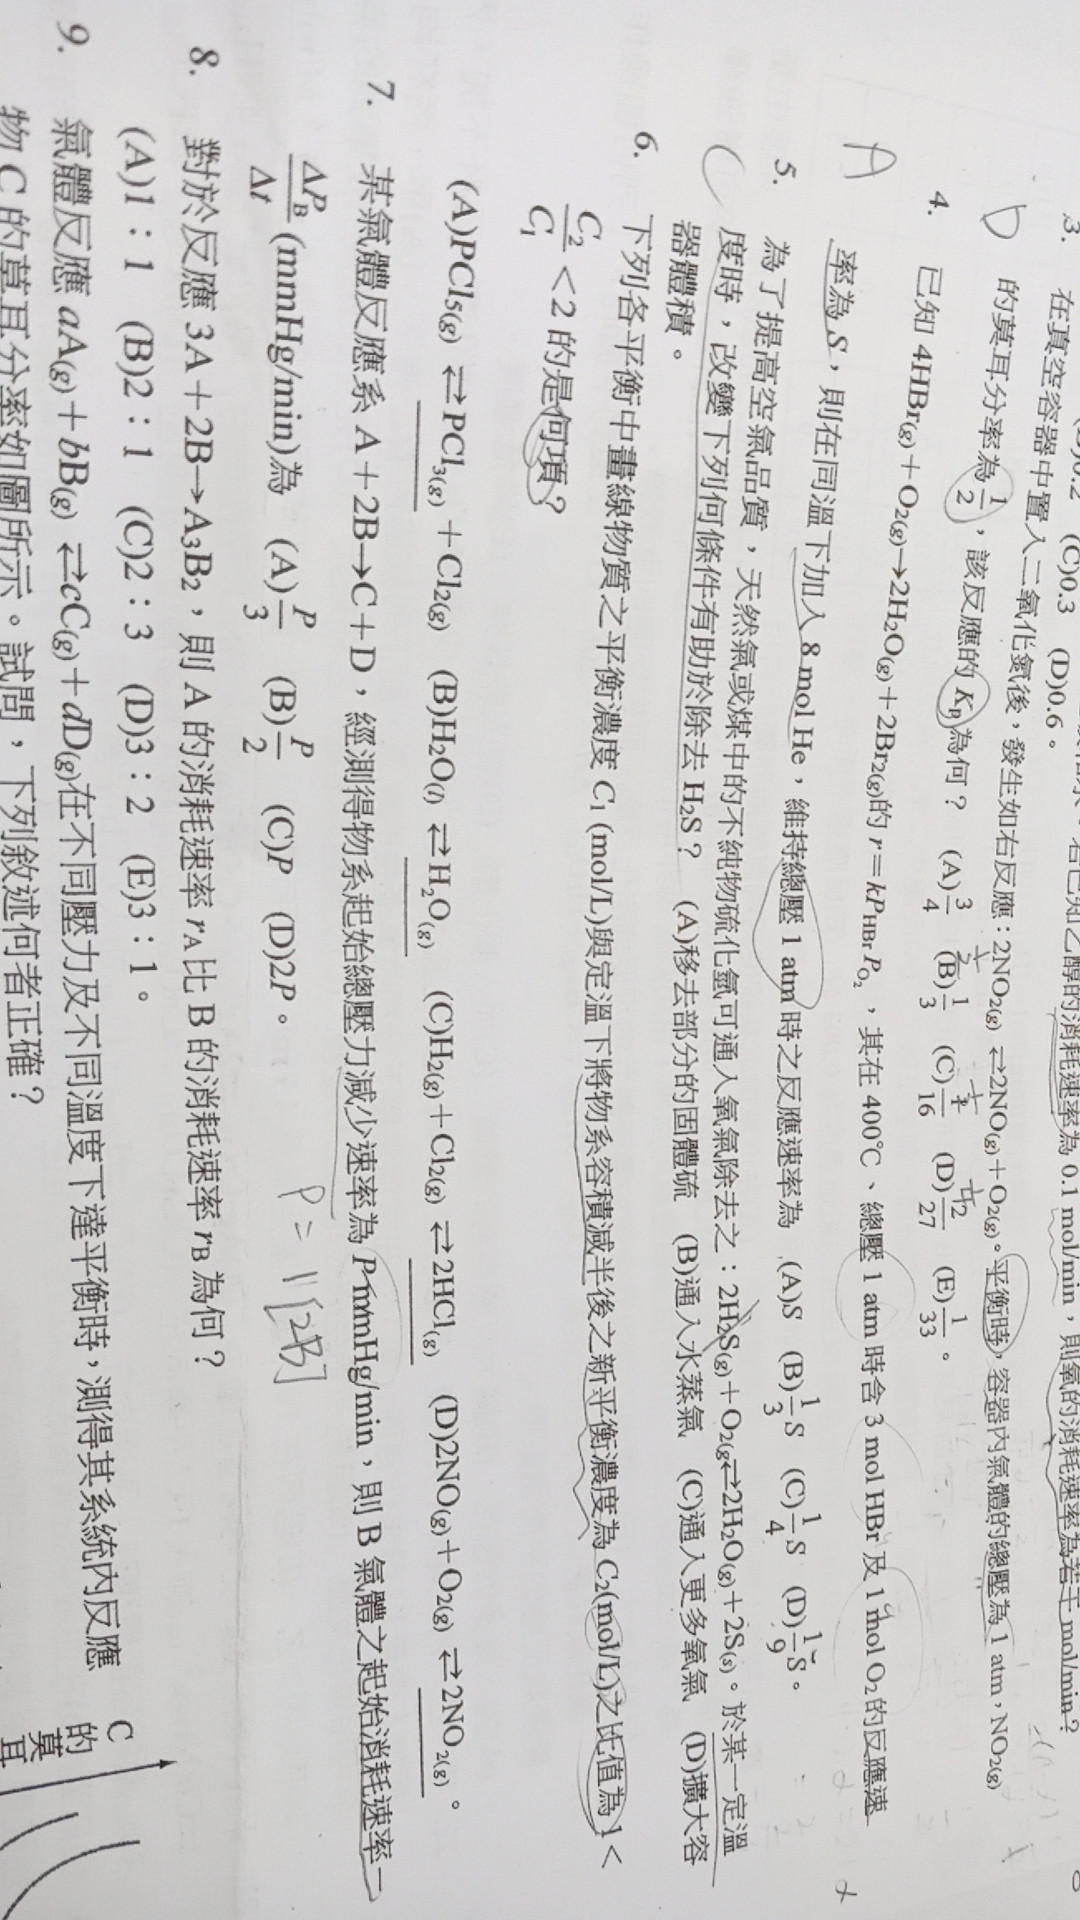 (C)0.3 (D)0.6。
的消耗速率為 0.1 mol/min,則氧的消耗速率為若干 mol/min?
3. 在真空容器中置入二氧化氮後,發生如右反應:2NO2(g) ⇄2NO(g)+O2(g)。平衡時,容器內氣體的總壓為 1 atm,NO2(g)
D 的莫耳分率為 1/2,該反應的 Kp 為何? (A)3/4 (B)1/3 (C)/16 (D)/27 (E)1/33。
4. 已知 4HBr(g)+O2(g)→2H2O(g)+2Br2(g)的 r=kPHBr PO2,其在 400℃、總壓 1 atm 時含 3 mol HBr 及 1 mol O2 的反應速
A 率為 S,則在同溫下加入 8 mol He,維持總壓 1 atm 時之反應速率為 (A)S (B)1/3 S (C)1/4 S (D)1/9 S。
5. 為了提高空氣品質,天然氣或煤中的不純物硫化氫可通入氧氣除去之:2H2S(g)+O2(g)⇄2H2O(g)+2S(s)。於某一定溫
C 度時,改變下列何條件有助於除去 H2S? (A)移去部分的固體硫 (B)通入水蒸氣 (C)通入更多氧氣 (D)擴大容
器體積。
6. 下列各平衡中畫線物質之平衡濃度 C1 (mol/L)與定溫下將物系容積減半後之新平衡濃度為 C2(mol/L)之比值為 1<
C2/C1 <2 的是何項?
(A)PCl5(g) ⇄PCl3(g)+Cl2(g) (B)H2O(l) ⇄H2O(g) (C)H2(g)+Cl2(g) ⇄2HCl(g) (D)2NO(g)+O2(g) ⇄2NO2(g)。
7. 某氣體反應系 A+2B→C+D,經測得物系起始總壓力減少速率為 P mmHg/min,則 B 氣體之起始消耗速率−
ΔPB/Δt (mmHg/min)為 (A)P/3 (B)P/2 (C)P (D)2P。
8. 對於反應 3A+2B→A3B2,則 A 的消耗速率 rA 比 B 的消耗速率 rB 為何?
(A)1:1 (B)2:1 (C)2:3 (D)3:2 (E)3:1。
9. 氣體反應 aA(g)+bB(g) ⇄cC(g)+dD(g)在不同壓力及不同溫度下達平衡時,測得其系統內反應
物 C 的莫耳分率如圖所示。試問,下列敘述何者正確?
C
的
莫
耳